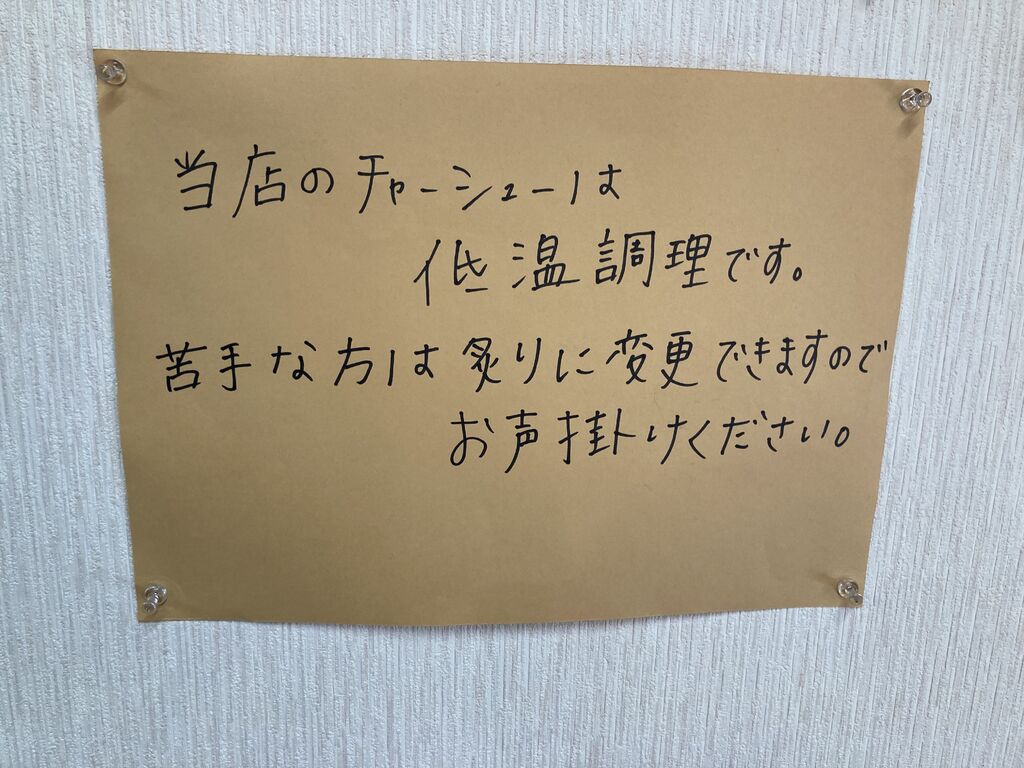 当店のチャーシューは
低温調理です。
苦手な方は炙りに変更できますので
お声掛けください。